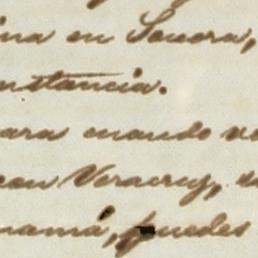 ina en Sonora,
nstancia.
para cuando v
con Veracruz,
namá, puedes